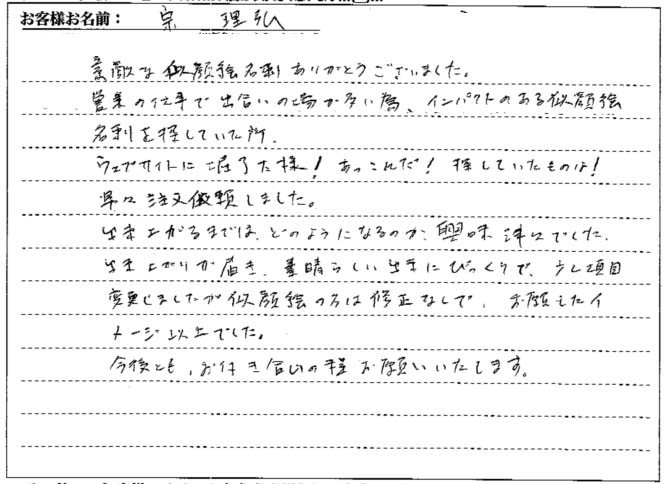 お客様お名前： 宗 理弘
素敵な似顔絵名刺ありがとうございました。
営業の仕事で出合いの場が多い為、インパクトのある似顔絵
名刺を探していた所、
ウェブサイトに 様！ あっこれだ！ 探していたものは！
早々注文依頼しました。
出来上がるまでは、どのようになるのか、興味津々でした。
出来上がりが届き、素晴らしい出来にびっくりで、少し項目
変更しましたが似顔絵の方は修正なしで、お願えしたイ
メージ以上でした。
今後とも、お付き合いの程お願いいたします。